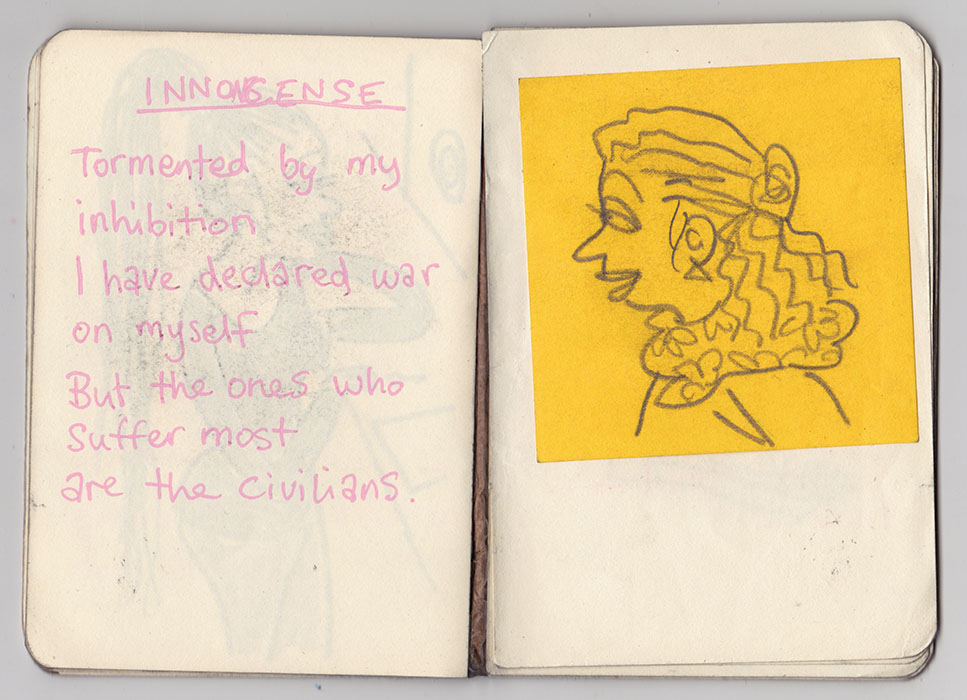 INNONSENSE
Tormented by my
inhibition
I have declared war
on myself
But the ones who
suffer most
are the civilians.